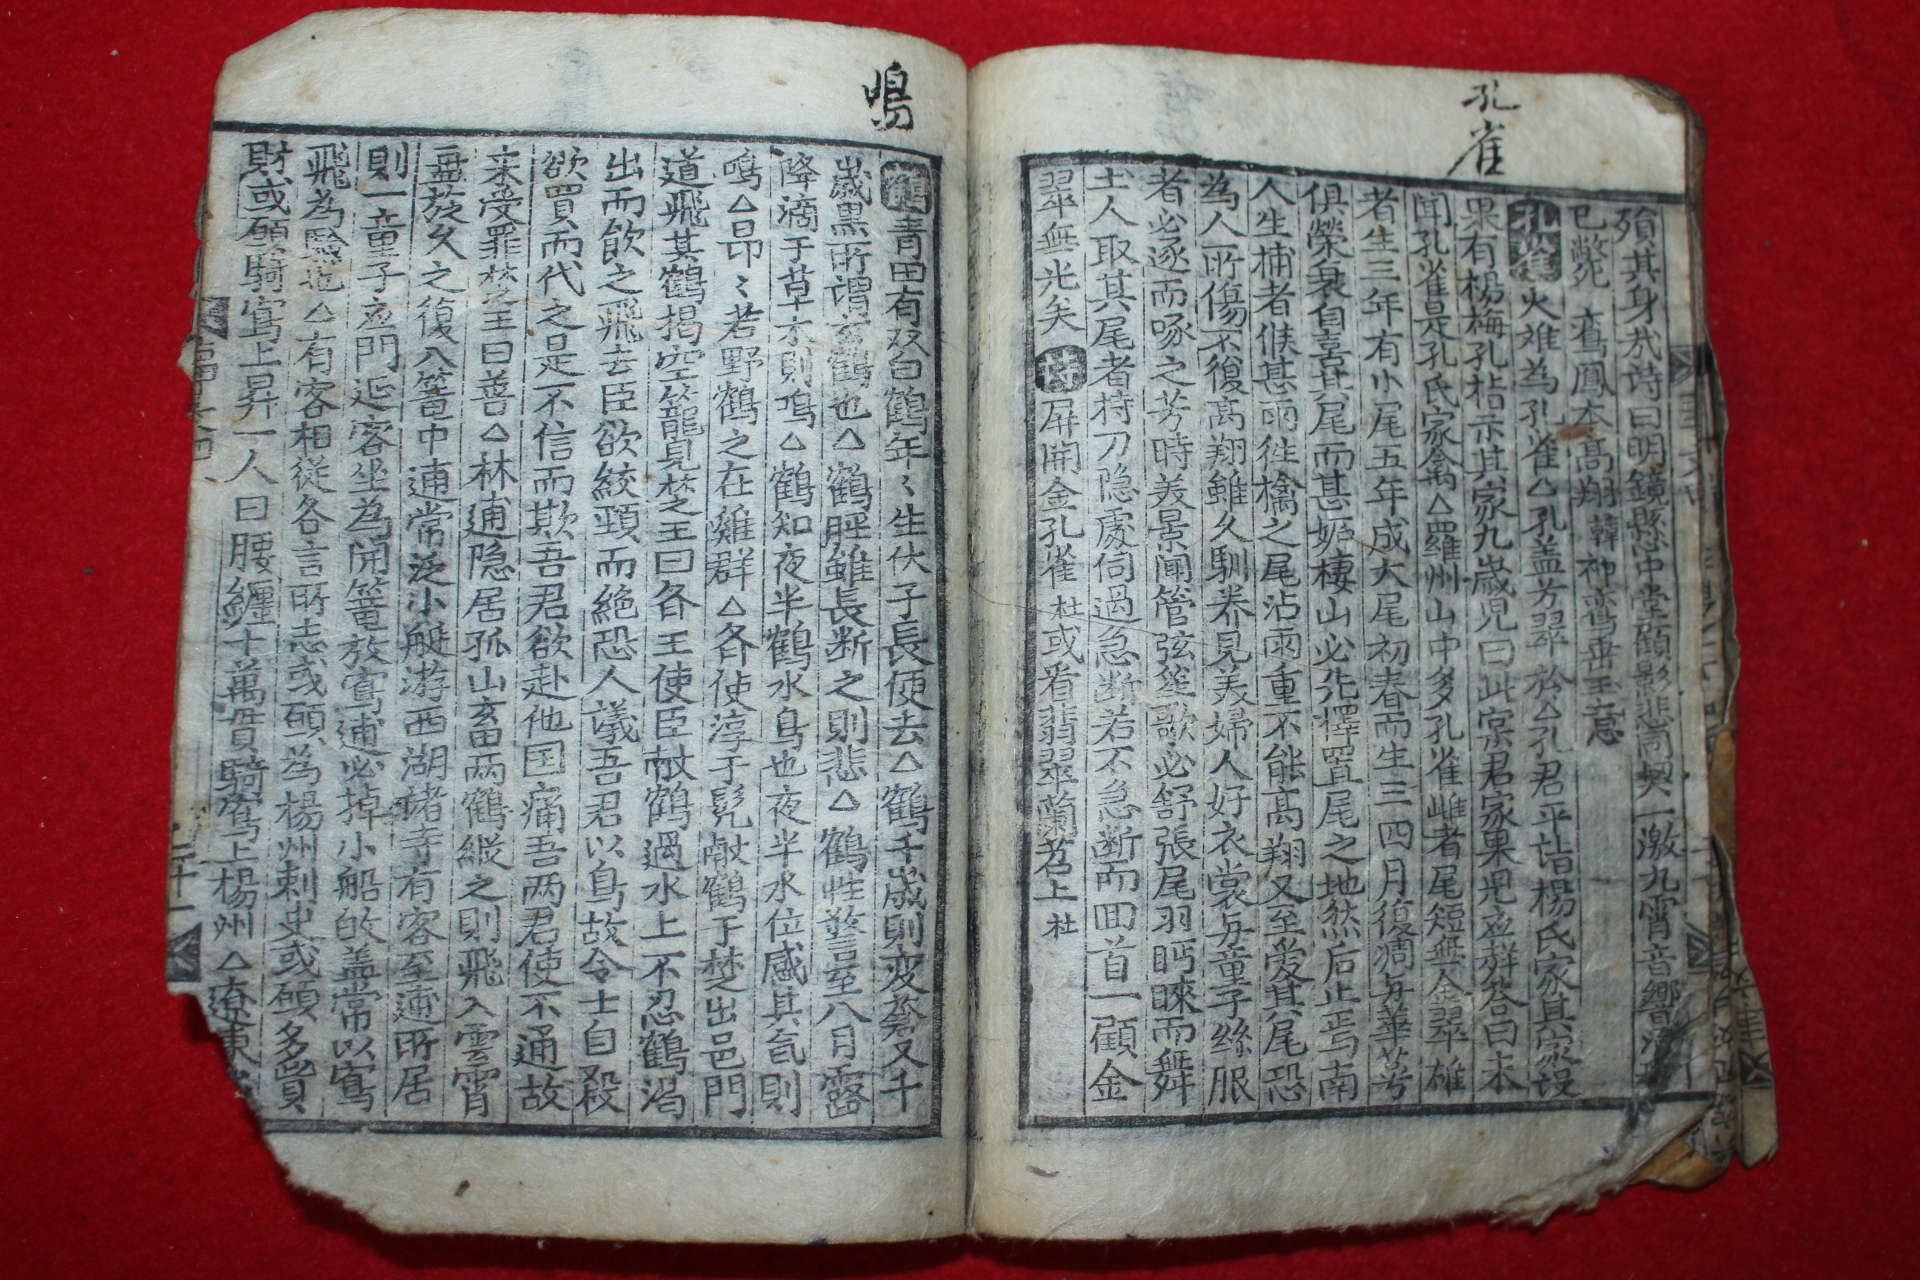 孔雀
殞其身㢤詩曰明鏡懸中堂顧影悲同契一激九霄音響
已斃 鸞鳳本高翔 韓 神鸞
孔雀 火难為孔雀△孔盖芳翠於△孔君平詣楊氏家其家設
果有楊梅孔枯示其家九歲児曰此宗君家果児应辞答曰未
聞孔雀是孔氏家禽△羅州山中多孔雀雌者尾短無金翠雄
者生三年有小尾五年成大尾初春而生三四月復凋与華萼
俱榮衰自喜其尾而甚妬棲山必先擇置尾之地然后止焉南
人生捕者候甚雨徃擒之尾沾雨重不能高翔又至爱其尾恐
為人所傷不復高翔雖久馴养見美婦人好衣裳与童子絲服
者必逐而啄之芳時美景闻管弦笙歌必舒張尾羽眄睞而舞
土人取其尾者持刀隐處伺過急断若不急断而回首一顧金
翠無光矣 詩 屏開金孔雀 杜 或看翡翠蘭苕上 杜
鳴
鶴 青田有双白鶴年〻生伏子長便去△鶴千歲則変蒼又千
歲黑所謂玄鶴也△鶴脛雖長断之則悲△鶴性警至八月露
降滴于草木則鳴△鶴知夜半鶴水鳥也夜半水位感其氣則
鳴△昂〻若野鶴之在雞群△各使淳于髠献鶴于楚出邑門
道飛其鶴揭空籠見楚之王曰各王使臣献鶴過水上不忍鶴渴
出而飲之飛去臣欲絞頸而絶恐人議吾君以鳥故令士自殺
欲買而代之是不信而欺吾君欲赴他国痛吾两君使不通故
来受罪楚王曰善△林逋隐居孤山畜两鶴縱之則飛入雲霄
盘旋久之復入篭中逋常泛小艇游西湖諸寺有客至逋所居
則一童子应門延客坐為開篭放鶴逋必掉小船故盖常以鶴
飛為驗也△有客相從各言所志或願為楊州刺史或願多貲
財或願騎鶴上昇一人曰腰纏十萬貫騎鶴上楊州△遼東